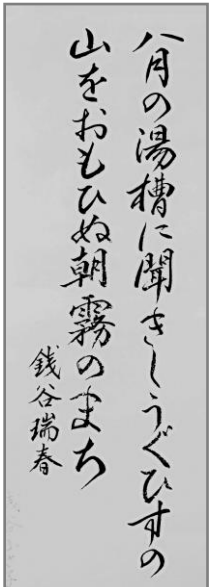 八月の湯槽に聞きしうぐひすの
山をおもひぬ朝霧のまち
銭谷瑞春